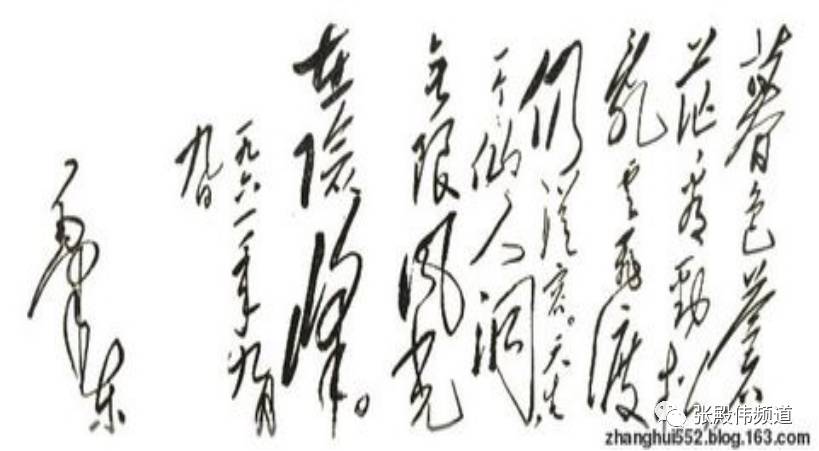 暮色蒼
茫看勁松
亂云飛渡
仍從容。天生
一个仙人洞
无限風光
在險峰。
一九六一年九月
九日
毛泽东
张殿伟频道
zhanghui552.blog.163.com